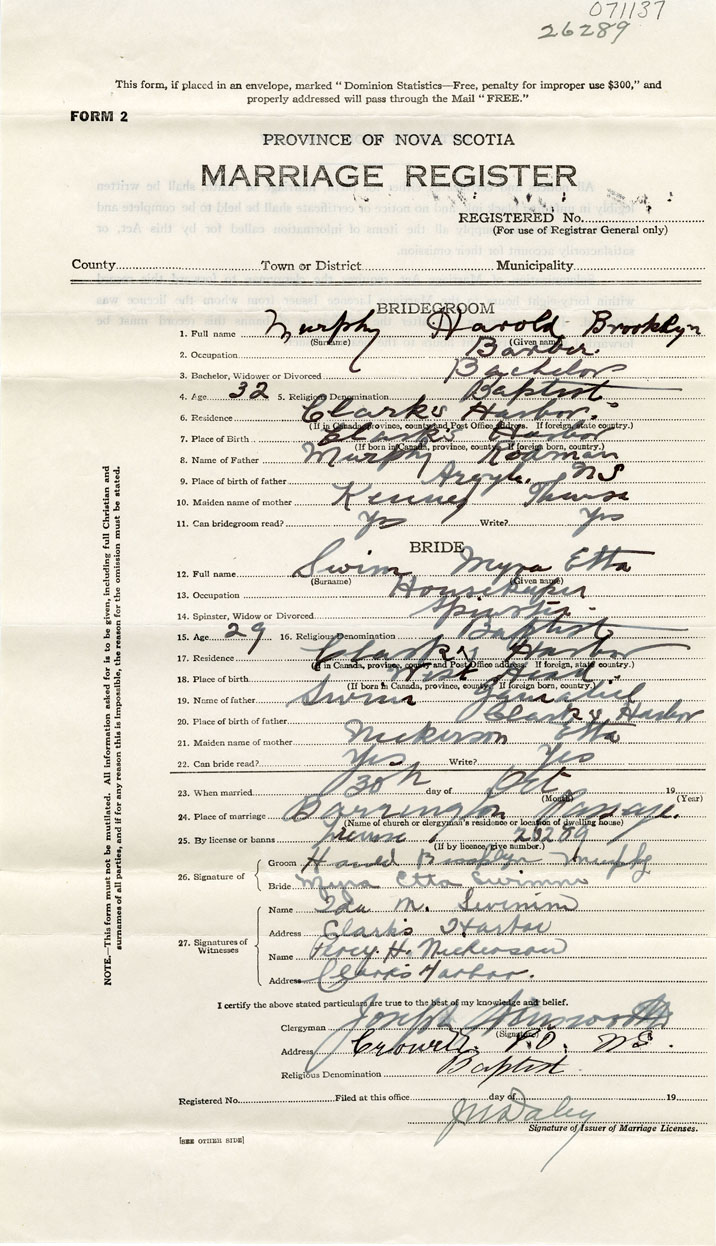 071137
26289
This form, if placed in an envelope, marked "Dominion Statistics—Free, penalty for improper use $300," and
properly addressed will pass through the Mail "FREE."
FORM 2
PROVINCE OF NOVA SCOTIA
MARRIAGE REGISTER
REGISTERED No.
(For use of Registrar General only)
County Town or District Municipality
BRIDEGROOM
1. Full name Murphy Harold Brooklyn
(Surname) (Given name)
2. Occupation Barber.
3. Bachelor, Widower or Divorced Bachelor
4. Age 32 5. Religious Denomination Baptist
6. Residence Clark's Harbor.
(If in Canada, province, county and Post Office address. If foreign, state country.)
7. Place of Birth Clark's Harbor
(If born in Canada, province, county. If foreign born, country.)
8. Name of Father Murphy
9. Place of birth of father Argyle. NS
10. Maiden name of mother Kenney
11. Can bridegroom read? Yes Write? Yes
BRIDE
12. Full name Swim Myra Etta
(Surname) (Given name)
13. Occupation Housekeeper
14. Spinster, Widow or Divorced Spinster.
15. Age 29 16. Religious Denomination Baptist
17. Residence Clark's Harbor
(If in Canada, province, county and Post Office address. If foreign, state country.)
18. Place of birth West Head.
(If born in Canada, province, county. If foreign born, country.)
19. Name of father Swim Gamaliel
20. Place of birth of father Clark's Harbor
21. Maiden name of mother Nickerson Etta
22. Can bride read? Yes Write? Yes
23. When married 30th day of Oct 19
(Month) (Year)
24. Place of marriage Barrington Passage.
(Name of church or clergyman's residence or location of dwelling house)
25. By license or banns license 26289
(If by licence, give number.)
26. Signature of Groom Harold Brooklyn Murphy
Bride Myra Etta Swimm
27. Signatures of Witnesses Name Ida M. Swimm
Address Clark's Harbor
Name Percy H. Nickerson
Address Clark's Harbor.
I certify the above stated particulars are true to the best of my knowledge and belief.
Clergyman Joseph
(Signature)
Address Crowell. P.O. N.S.
Religious Denomination Baptist.
Registered No. Filed at this office day of 19
J M Daley
Signature of Issuer of Marriage Licenses.
[SEE OTHER SIDE]
NOTE.—This form must not be mutilated. All information asked for is to be given, including full Christian and
surnames of all parties, and if for any reason this is impossible, the reason for the omission must be stated.